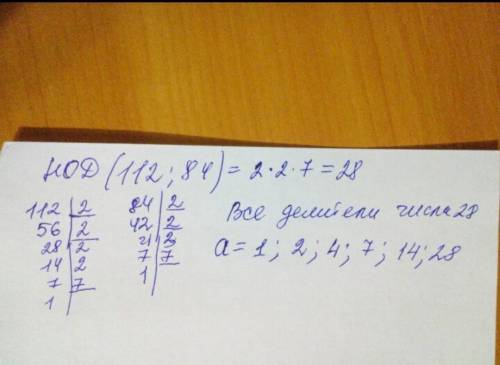 НОД (112; 84) = 2 · 2 · 7 = 28
112 | 2
56 | 2
28 | 2
14 | 2
7 | 7
1 |
84 | 2
42 | 2
21 | 3
7 | 7
1 |
Все делители числа 28
a = 1; 2; 4; 7; 14; 28